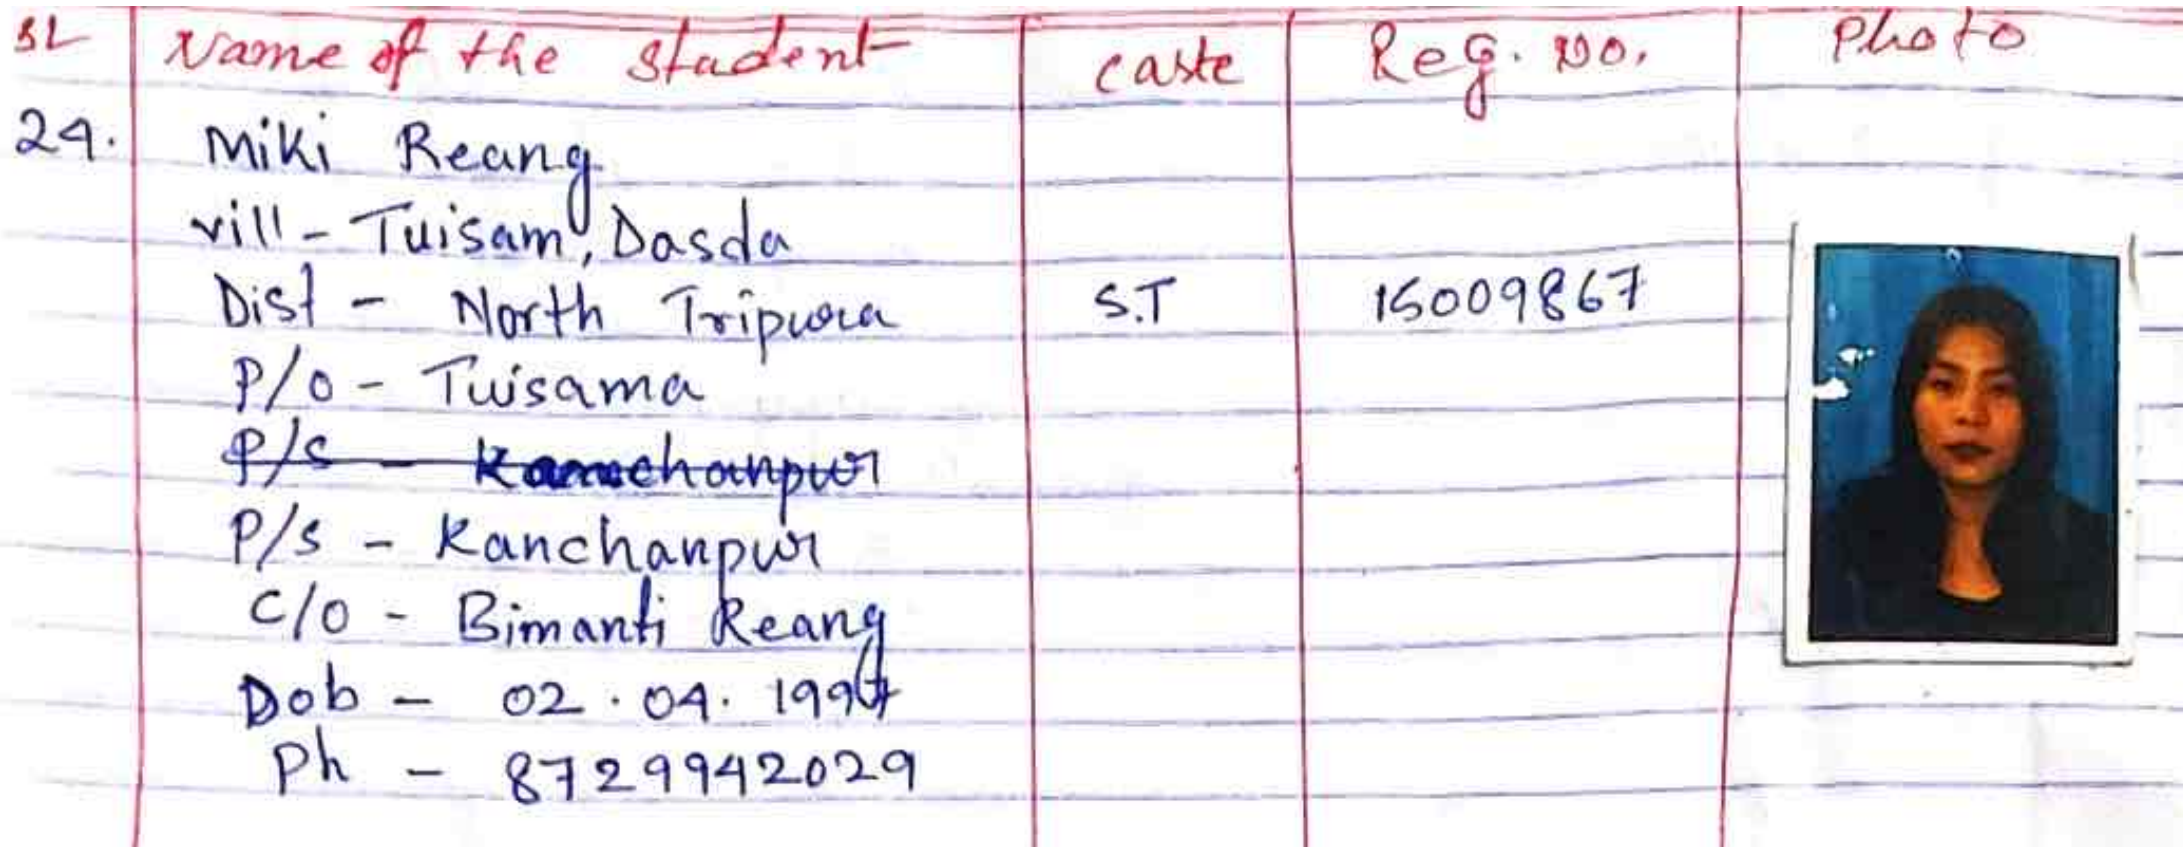 SL Name of the student caste Reg. No. Photo
24. Miki Reang
vill - Tuisam, Dasda
Dist - North Tripura S.T 15009867
P/O - Tuisama
P/S - Kanchanpur
P/S - Kanchanpur
C/O - Bimanti Reang
Dob - 02.04.1997
Ph - 8729942029